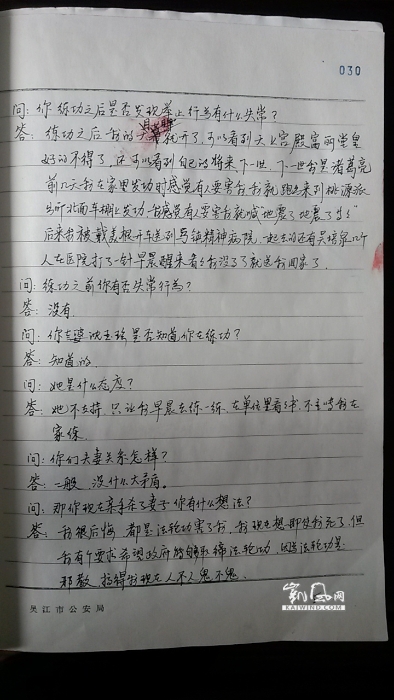 030
问: 你练功之后是否发现举止行为有什么失常?
答: 练功之后我的天目就开了,可以看到天上宫殿富丽堂皇
好的不得了,还可以看到自己的将来,下一世,下一世我是诸葛亮
前几天我在家里发功时感觉有人要害我,我就跑出来到桃源派
出所北面车棚上发功,我感觉有人要害我就喊“地震了地震了”
后来我被戴 根开车送到 镇精神病院,一起去的还有吴培家几个
人在医院打了一针早晨醒来看看我没了了就送我回家了。
问: 练功之前你有否失常行为?
答: 没有
问: 你老婆沈玉珍是否知道你在练功?
答: 知道的。
问: 她是什么态度?
答: 她不支持,只让我早晨去练一练,在单位里看看书,不主张我在
家练
问: 你们夫妻关系怎样?
答: 一般,没什么大矛盾。
问: 那你现在亲手杀了妻子你有什么想法?
答: 我很后悔,都是法轮功害了我,我现在想那处我死了,但
我有个要求希望政府能够取缔法轮功,因为法轮功是
邪教,搞得我现在人不人鬼不鬼。
吴江市公安局
凯风网
KAIWIND.COM